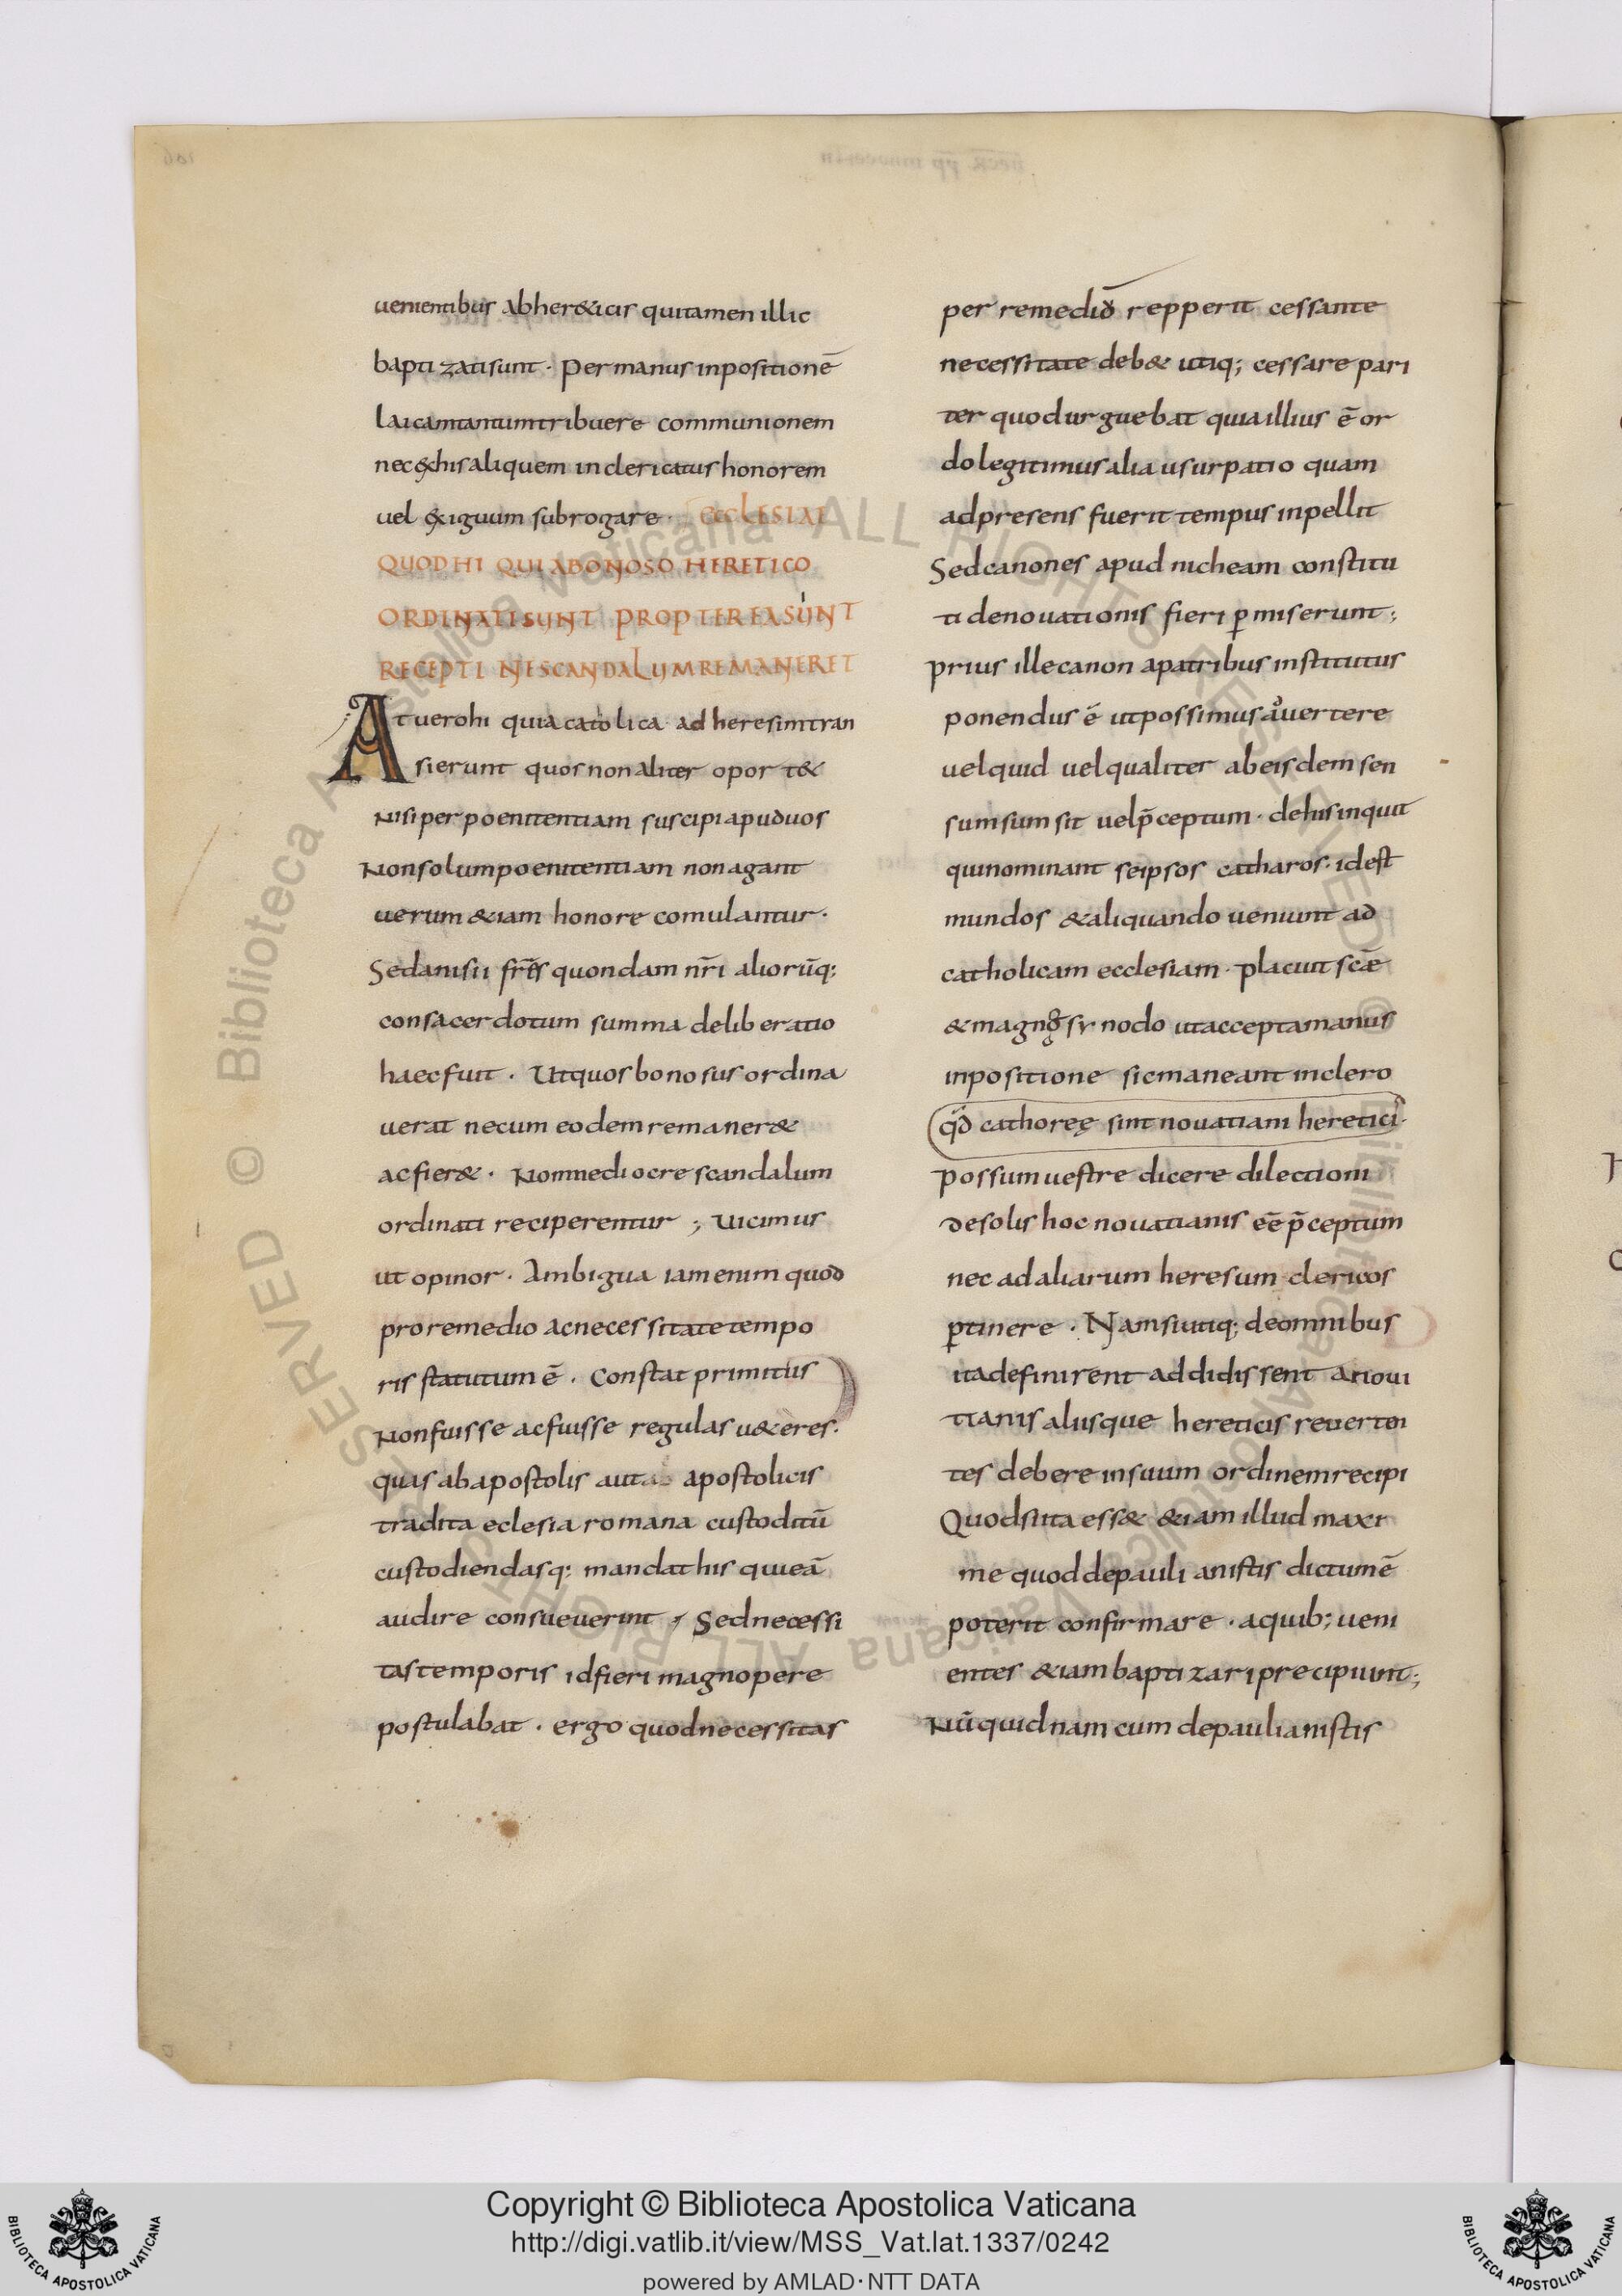 uenientibus ab her&icis qui tamen illic
baptizati sunt · Per manus inpositionē
laicam tantum tribuere communionem
nec &x his aliquem in clericatus honorem
uel &xiguum subrogare · ECCLESIAE
QUOD HI QUI A BONOSO HERETICO
ORDINATI SUNT PROPTEREA SUNT
RECEPTI NE SCANDALUM REMANERET
At uero hi qui a catolica ad heresim tran
sierunt quos non aliter oport&
Nisi per poenitentiam suscipi apud uos
Non solum poenitentiam non agant
uerum &iam honore comulantur ·
Sed anisii fr̄es quondam nr̄i aliorūq;
consacerdotum summa deliberatio
haec fuit · Ut quos bonosus ordina
uerat ne cum eodem remaner&
ac fier& · Non mediocre scandalum
ordinati reciperentur ; Uicimus
ut opinor · Ambigua iam enim quod
pro remedio ac necessitate tempo
ris statutum ē · Constat primitus
Non fuisse ac fuisse regulas u&eres ·
quas ab apostolis aut apostolicis
tradita eclesia romana custoditū
custodiendasq; mandat his qui eā
audire consueuerint ; Sed necessi
tas temporis id fieri magnopere
postulabat · ergo quod necessitas
per remediō repperit cessante
necessitate deb& utiq; cessare pari
ter quod urguebat quia illius ē or
do legitimus alia usurpatio quam
ad presens fuerit tempus inpellit
Sed canones apud nicheam constitu
ti de nouationis fieri p̱miserunt ;
prius ille canon a patribus institutus
ponendus ē ut possimus aduertere
uel quid uel qualiter ab eisdem sen
sum sum sit uel p̄ceptum · de his inquit
qui nominant seipsos catharos · id est
mundos & aliquando ueniunt ad
catholicam ecclesiam · placuit scǣ
& magnę synodo ut accepta manus
inpositione sic maneant in clero
qd̄ cathoreę sint nouatiani heretici ·
possum uestre dicere dilectioni
de solis hoc nouatianis eē p̄ceptum
nec ad aliarum heresum clericos
p̱tinere · Nam si utiq; de omnibus
ita definirent addidissent a noui
tianis aliisque hereticis reuerten
tes debere in suum ordinem recipi
Quod si ita ess& &iam illud maxi
me quod de paulianistis dictum ē
poterit confirmare · a quib; ueni
entes &iam baptizari precipiunt ;
Nū quidnam cum de paulianistis
Copyright © Biblioteca Apostolica Vaticana
http://digi.vatlib.it/view/MSS_Vat.lat.1337/0242
powered by AMLAD · NTT DATA
BIBLIOTECA APOSTOLICA VATICANA
BIBLIOTECA APOSTOLICA VATICANA
© Biblioteca Apostolica Vaticana ALL RIGHTS RESERVED
© Biblioteca Apostolica Vaticana ALL RIGHTS RESERVED